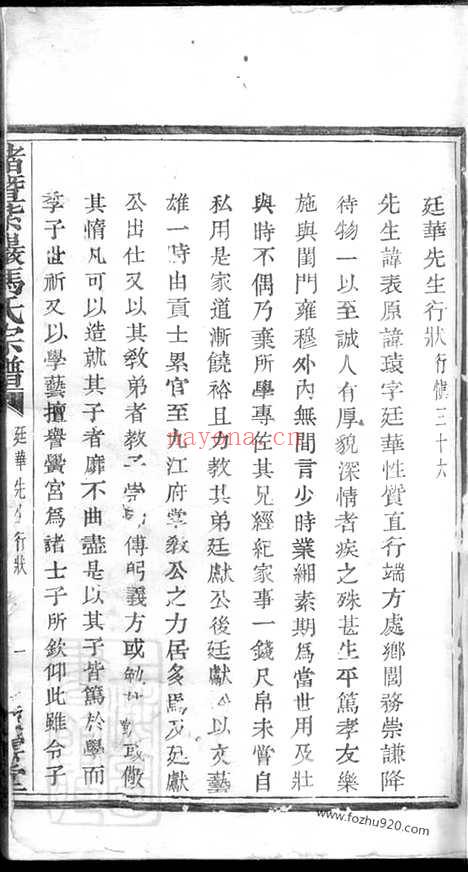 廷華先生行狀行愼三十六
先生諱表原諱瓌字廷華性質直行端方處鄉閭務崇謙降
待物一以至誠人有厚貌深情者疾之殊甚生平篤孝友樂
施與閨門雍穆外內無間言少時業緗素期爲當世用及壯
與時不偶乃棄所學專佐其兄經紀家事一錢尺帛未嘗自
私用是家道漸饒裕且力教其弟廷獻公後廷獻公以文藝
雄一時由貢士累官至九江府掌教公之力居多焉及廷獻
公出仕又以其教弟者教子學傅義方或或儆
其惰凡可以造就其子者靡不曲盡是以其子皆篤於學而
季子世祈又以學藝擅譽黌宮爲諸士子所欽仰此雖令子
諸暨柴巖馬氏宗譜
廷華先生行狀
一
堂
nayona.cn
www.fozhu920.com